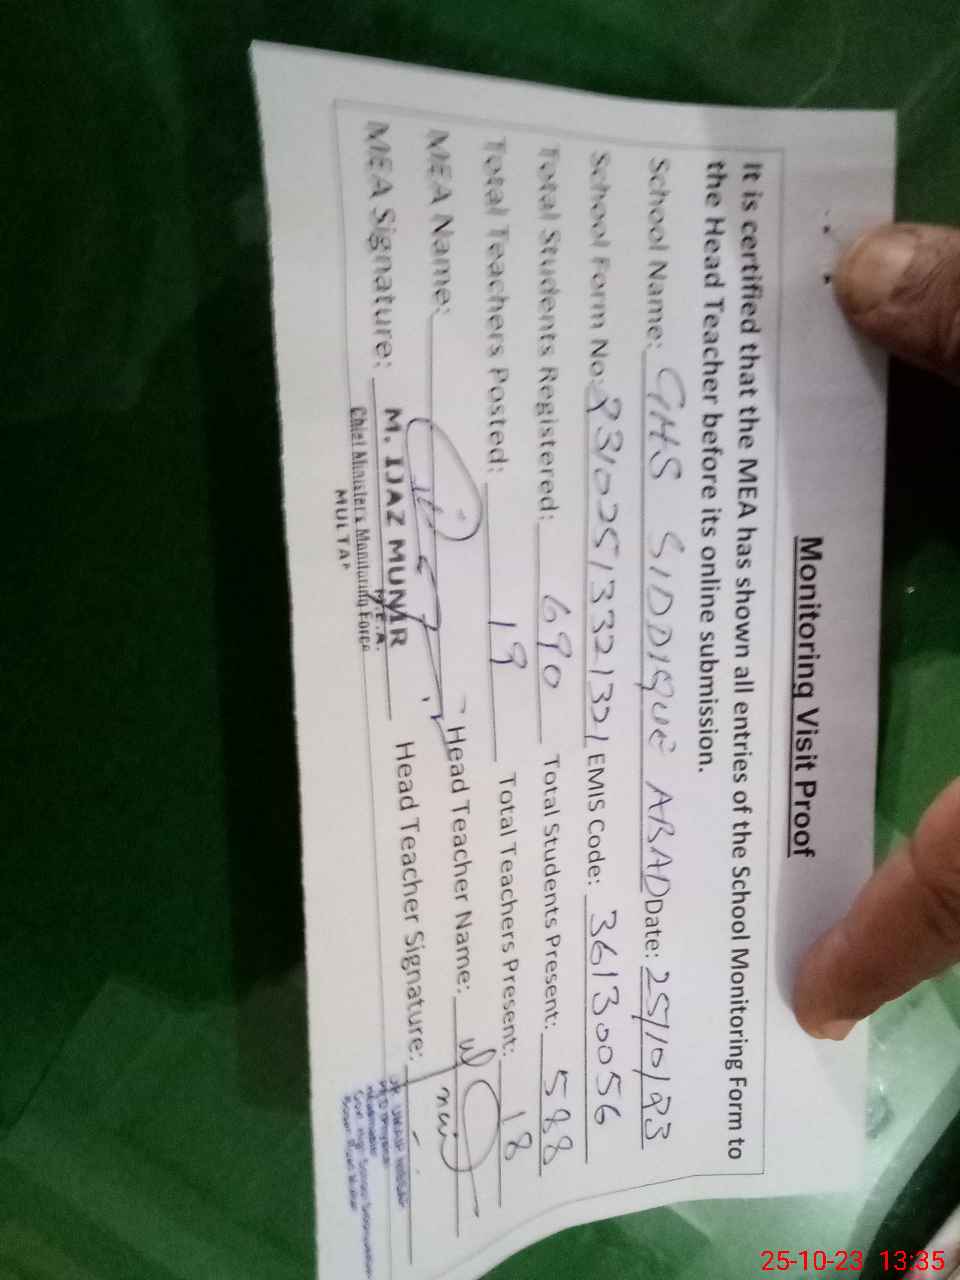 Monitoring Visit Proof
It is certified that the MEA has shown all entries of the School Monitoring Form to
the Head Teacher before its online submission.
School Name: GHS SIDDIQUE ABAD Date: 25/10/23
School Form No: 93102513321321 EMIS Code: 36130056
Total Students Registered: 690 Total Students Present: 588
Total Teachers Posted: 19 Total Teachers Present: 18
MEA Name: Head Teacher Name:
MEA Signature: Head Teacher Signature:
M. IJAZ MUNIR
M.E.A.
Chief Ministers Monitoring Force
MULTAN
25-10-23 13:35